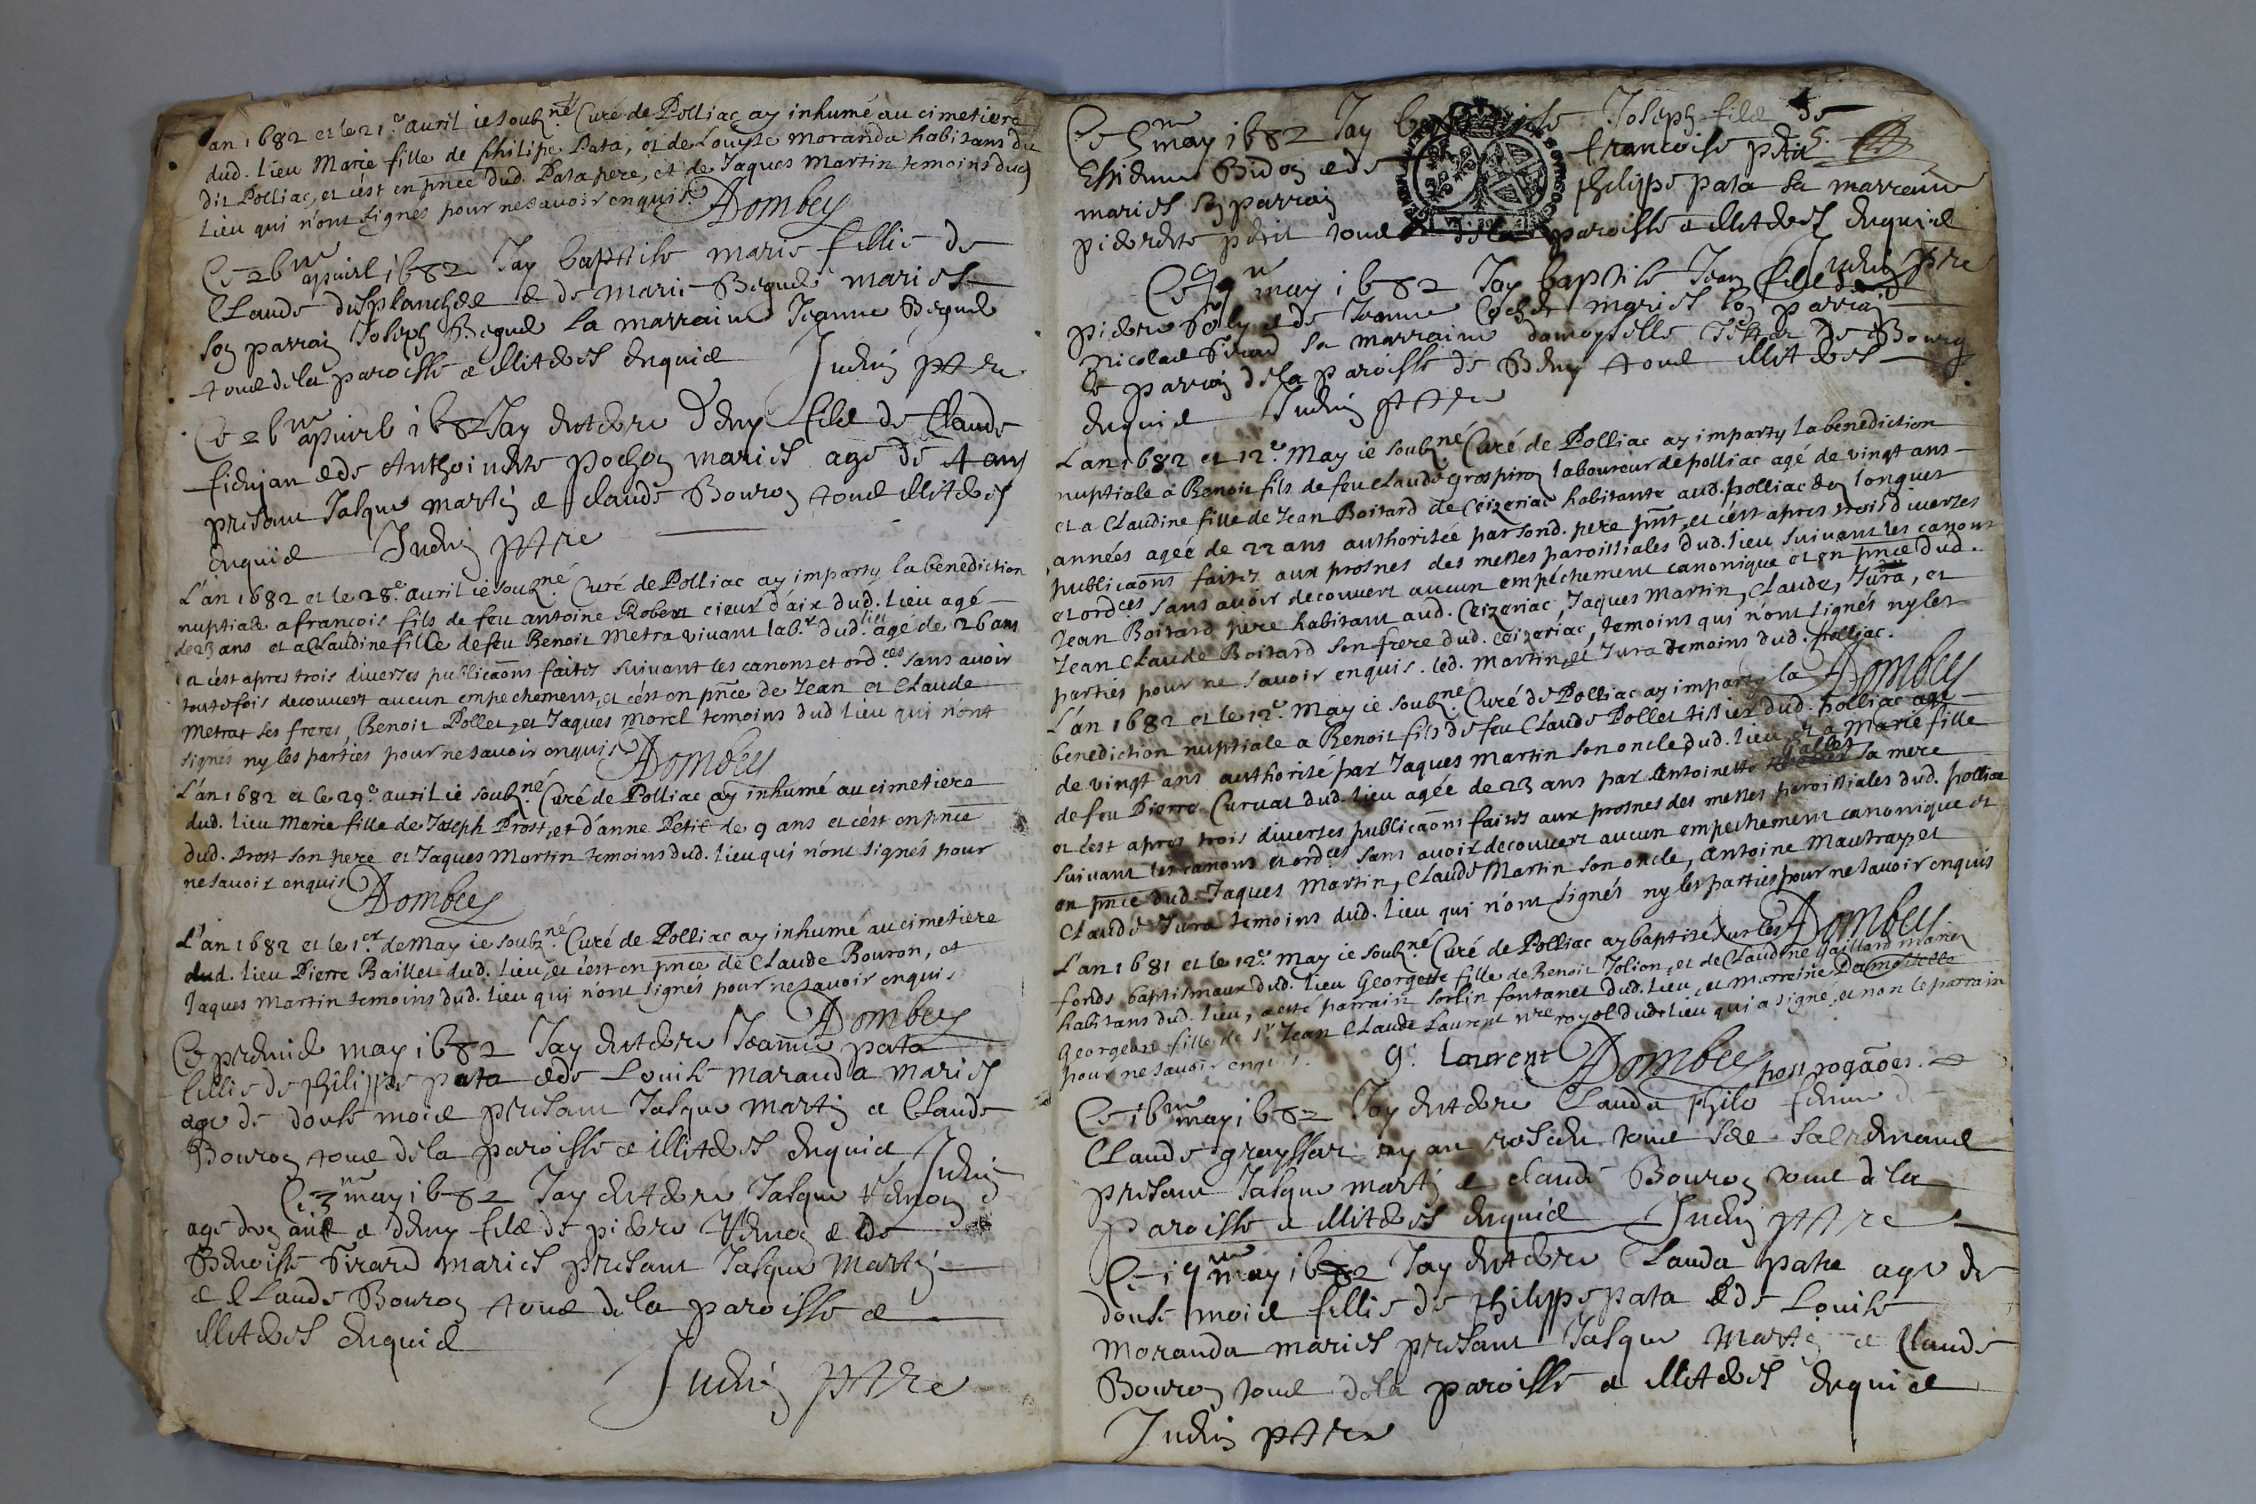 L'an 1682 et le 21.e auril ie soubz.né Curé de Polliac ay inhumé au cimetiere
dud. lieu Marie fille de philipe Pata, et de Louyse Moranda habitans du
dit Polliac, et c'est en pnce dud. Pata pere, et de Jaques Martin temoins dud
lieu qui n'ont signés pour ne sauoir enquis. Dombey
Ce 26me apuril 1682 Jay baptise marie fillie de
Claude desplanche e de marie Beguet maries
son parrain Joseph Beguet sa marraine Jeanne Beguet
tous de la paroisse e illiteres enquis Judin ptre
Ce 26me apuril 1682 Jay entere deny fils de Claude
fienjan e de Anthoinete pochon maries age de 4 ans
presant Jasque martin e claude Bouron tous illiteres
enquis Judin ptre
L'an 1682 et le 28.e auril ie soubz.né Curé de Polliac ay imparty la benediction
nuptiale a francois fils de feu antoine Robert cieur d'aix dud. lieu agé
de 23 ans et a Claudine fille de feu Benoit Metra viuant lab.r dud. lieu agé de 26 ans
et c'est apres trois diuerses publicaōns faites suiuant les canons et ord.ces sans auoir
toutefois decouuert aucun empechement, et c'est en pnce de Jean et Claude
Metrat ses freres, Benoit Pollet, et Jaques Morel temoins dud lieu qui n'ont
signés ny les parties pour ne sauoir enquis Dombey
L'an 1682 et le 29.e auril ie soubz.né Curé de Polliac ay inhumé au cimetiere
dud. lieu Marie fille de Joseph Prost, et d'anne Petit de 9 ans et c'est en pnce
dud. Prost son pere et Jaques Martin temoins dud. lieu qui n'ont signés pour
ne sauoir enquis Dombey
L'an 1682 et le 1.er de May ie soubz.né Curé de Polliac ay inhumé au cimetiere
dud. lieu Pierre Baillet dud. lieu, et c'est en pnce de Claude Bouron, et
Jaques Martin temoins dud. lieu qui n'ont signés pour ne sauoir enquis
Dombey
Ce premie may 1682 Jay entere Jeanne pata
fillie de philippe pata e de Louise maranda maries
age de douse mois presant Jasque martin e Claude
Bouron tous de la paroisse e illiteres enquis Judin
Ce 3me may 1682 Jay entere Jasque
age dun ans e deny fils de piere e de
Benoiste Sirard maries presant Jasque martin
e Claude Bouron tous de la paroisse e
illiteres enquis
Judin ptre
Ce 5me may 1682 Jay Joseph fils de
Estienne Bidon e de francoise petit 5.
maries son parrain philippe pata sa marraine
pierete petit tous de la paroisse e illiteres enquis
Judin ptre
Ce 9me may 1682 Jay baptise Jean fils de
piere e de Jeanne maries son parrain
Nicolas Sirard sa marraine damoyselle de Bourg
le parrain de la paroisse de Beny tous illiteres
enquis Judin ptre
L'an 1682 et 12.e May ie soubz.né Curé de Polliac ay imparty la benediction
nuptiale à Benoit fils de feu Claude grospiron laboureur de polliac agé de vingt ans
et a Claudine fille de Jean Boitard de Ceizeriac habitante aud. polliac des longues
années agée de 22 ans authorisée par sond. pere pnt, et c'est apres trois diuerses
publicaōns faites aux prosnes des messes paroissiales dud. lieu suiuant les canons
et ord.ces sans auoir decouuert aucun empéchement canonique et en pnce dud.
Jean Boitard pere habitant aud. Ceizeriac, Jaques Martin, Claude, Jura, et
Jean Claude Boitard son frere dud. ceizeriac, temoins qui n'ont signés ny les
parties pour ne sauoir enquis. led. Martin, et Jura temoins dud. Polliac.
Dombey
L'an 1682 et le 12.e May ie soubz.né Curé de Polliac ay imparty la
benediction nuptiale a Benoit fils de feu Claude Pollet tissier dud. Polliac agé
de vingt ans authorisé par Jaques Martin son oncle dud. lieu, et a Marie fille
de feu Pierre Curuat dud. lieu agée de 23 ans par Antoinette gallet sa mere
et c'est apres trois diuerses publicaōns faites aux prosnes des messes paroissiales dud. polliac
suiuant les canons et ord.ces sans auoir decouuert aucun empechement canonique et
en pnce dud. Jaques Martin, Claude Martin son oncle, Antoine Mautray, et
Claude Jura temoins dud. lieu qui n'ont signés ny les parties pour ne sauoir enquis
Dombey
L'an 1681 et le 12.e May ie soubz.né Curé de Polliac ay baptisé sur les
fonds baptismaux dud. lieu Georgette fille de Benoit Jolion, et de Claudine Gaillard mariez
habitans dud. lieu, a eté parrain sorlin fontanet dud. lieu, et marreine Damoiselle
Georgette fille de Sr Jean Claude Laurent nre royal dud. lieu qui a signé, et non le parrain
pour ne sauoir enquis. g. Laurent Dombey post rogãoes.
Ce 16me may 1682 Jay entere Clauda philo feme d
Claude grayssar ay an tous sacremans
presant Jasque martin e claude Bouron tous de la
paroisse e illiteres enquis Judin ptre
Ce 19me may 1682 Jay entere Clauda pata age de
douse mois fillie de philippe pata e de Louise
Moranda maries presant Jasque Martin e Claude
Bouron tous de la paroisse e illiteres enquis
Judin ptre